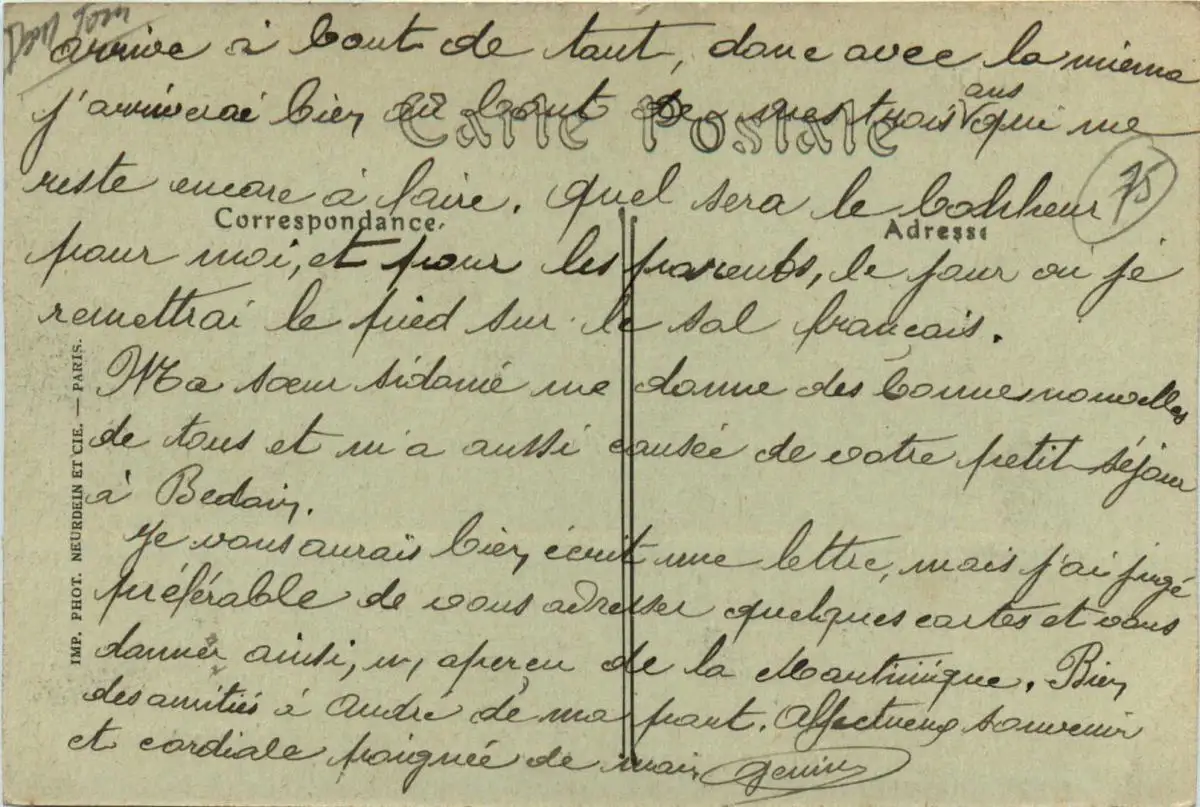 Dom Tom
arrive à bout de tout, donc avec la mienne
j'arriverai bien au bout de mes trois ans qui me
Carte Postale
reste encore à faire. Quel sera le bohheur
75
Correspondance.
Adresse
pour moi, et pour les parents, le jour ou je
remettrai le pied sur le sol français.
Ma sœur Sidonie me donne des bonnes nouvelles
de tous et m'a aussi causée de votre petit séjour
à Bedoin.
Je vous aurais bien écrit une lettre, mais j'ai jugé
préférable de vous adresser quelques cartes et vous
donner ainsi, un aperçu de la Martinique. Bien
des amitiés à André de ma part. Affectueux souvenir
et cordiale poignée de main
IMP. PHOT. NEURDEIN ET CIE. — PARIS.